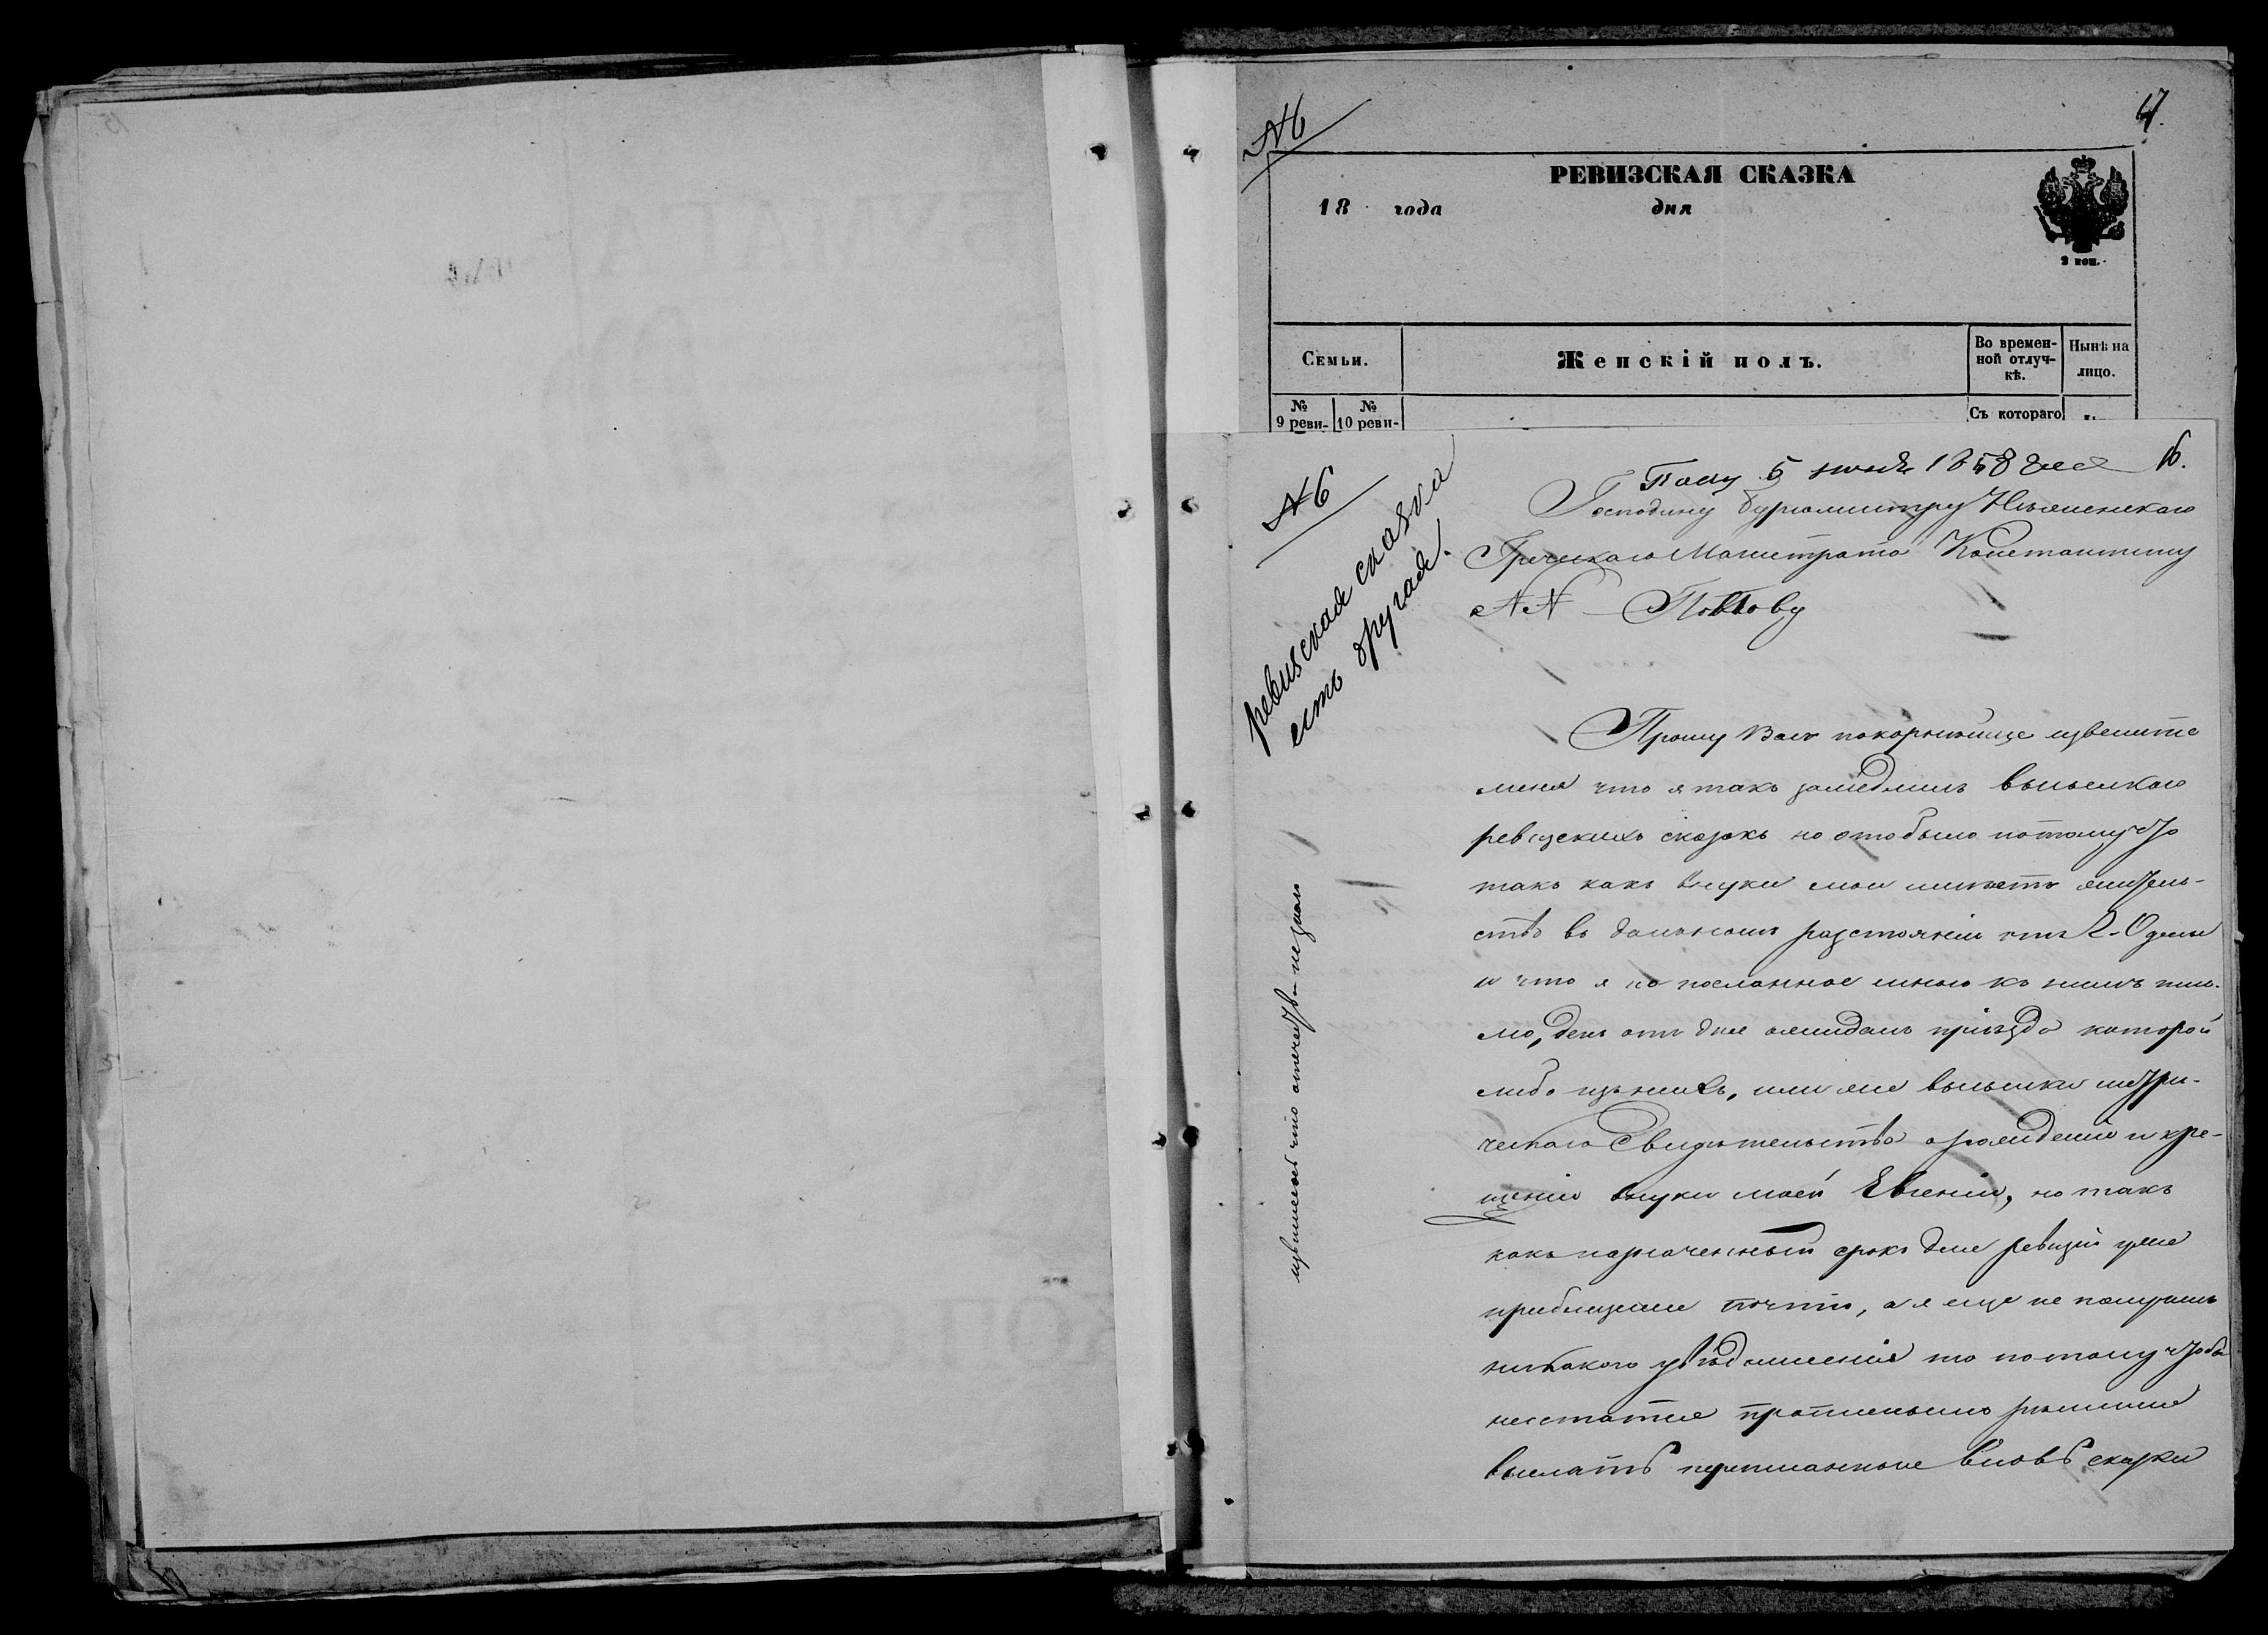 № 6
17.
РЕВИЗСКАЯ СКАЗКА
18 года дня
2 коп.
Семьи.
Женскій полъ.
Во времен-
ной отлуч-
кѣ.
Нынѣ на
лицо.
№
9 реви-
№
10 реви-
Съ котораго
№ 6
ревизская сказка
есть другая.
16.
5 1858
Господину Бургомистру Нѣжинскаго
Греческаго Магистрата Константину
NN Попову
Прошу Васъ покорнѣйше извените
меня что я такъ замедлилъ высылкою
ревизскихъ сказокъ но это было потому что
такъ какъ внуки мои имѣютъ житель-
ство въ дальномъ разстояніи отъ г. Одессы
и что я на посланное мною къ нимъ пись-
мо, день отъ дня ожидалъ пріѣзда которой
либо изъ нихъ, или же высылки метри-
ческаго Свидѣтельства о рожденіи и кре-
щеніи внуки моей Евгеніи, но такъ
какъ назначенный срокъ для ревизіи уже
приближился почти, а я еще не получилъ
никакого увѣдомленія то потому чтобы
выслать переписанные вновь сказки
извините что отечество не зналъ